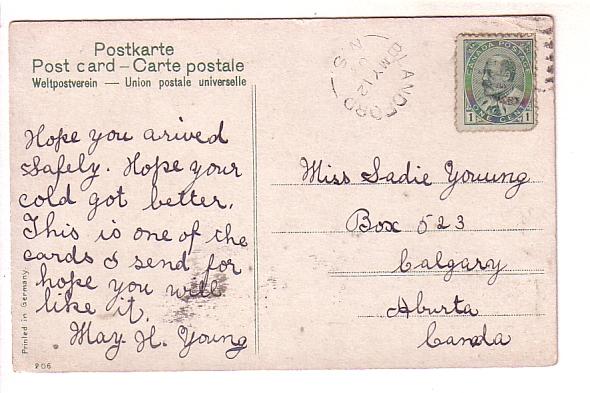 Postkarte
Post card – Carte postale
Weltpostverein — Union postale universelle
Hope you arived
safely. Hope your
cold got better.
This is one of the
cards I send for
hope you will
like it.
May. H. Young
Printed in Germany
206
BLANDFORD
MY 12
N.S.
CANADA POSTAGE
1 ONE CENT 1
Miss Sadie Youung
Box 523
Calgary
Aburta
Canda